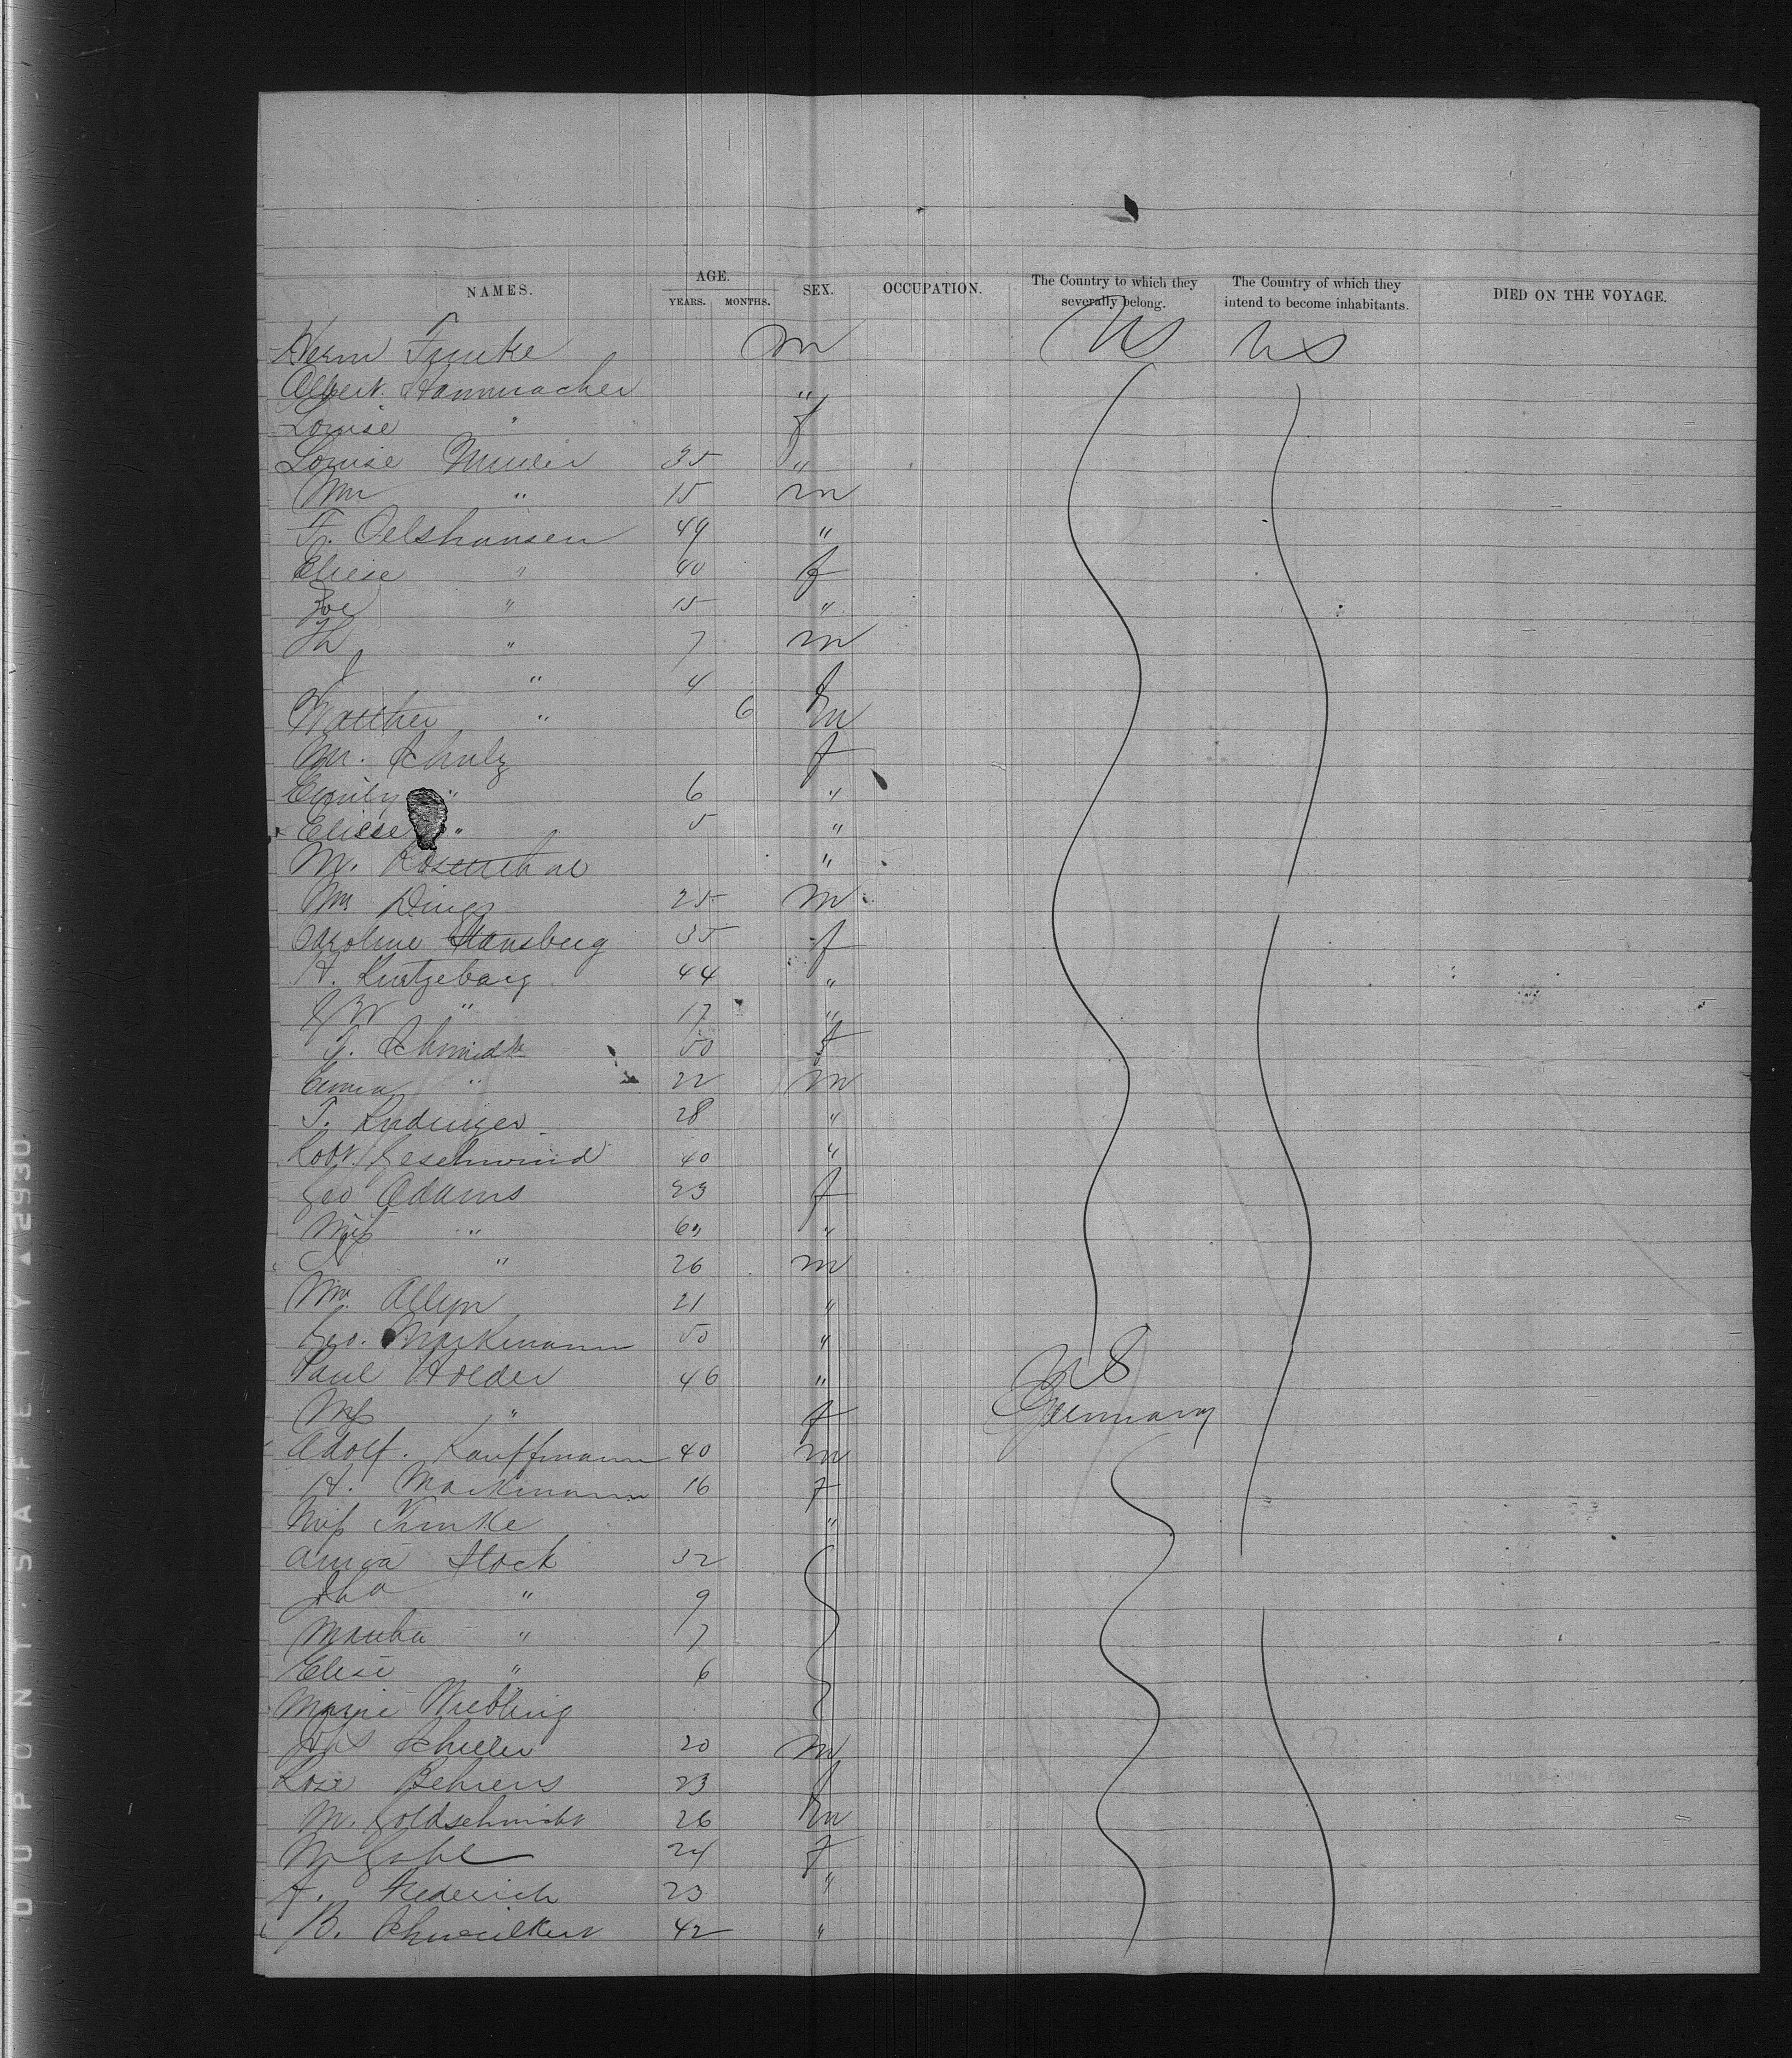 NAMES. AGE. YEARS. MONTHS. SEX. OCCUPATION. The Country to which they severally belong. The Country of which they intend to become inhabitants. DIED ON THE VOYAGE.
Herm Funke m US US
Albert Hammacher "
Louise " f
Louise Muller 35 "
Wm " 15 m
F. Oelshausen 49 "
Eliese " 40 f
Zoe " 15 "
Th " 7 m
J " 4 f
Walther " 6 m
Mr. Schulz f
Emily " 6 "
Eliese " 5 "
M. Rosenthal "
Wm Dings 25 m
Caroline Hansberg 35 f
H. Kurtzebarg 44 "
" 17 "
Schmidt 50 f
Emma " 22 m
28 "
Robt. Geschwind 40 "
Geo Adams 23 f
Miss " "
" 26 m
Wm Allyn 21 "
Geo. Markmann 50 "
Paul Holder 46 " US
" f Germany
Adolf. Kauffmann 40 m
H. Markmann 16 f
Miss Funke "
Anna Stock 32
" 9
Martha " 7
Elise " 6
Marie Wiebling
Schiller 20 m
Rose Behrens 23 f
M. Goldschmidt 26 m
24 f
A. Frederich 23 "
B. 42 "
DUPONT SAFETY ▲ 2930